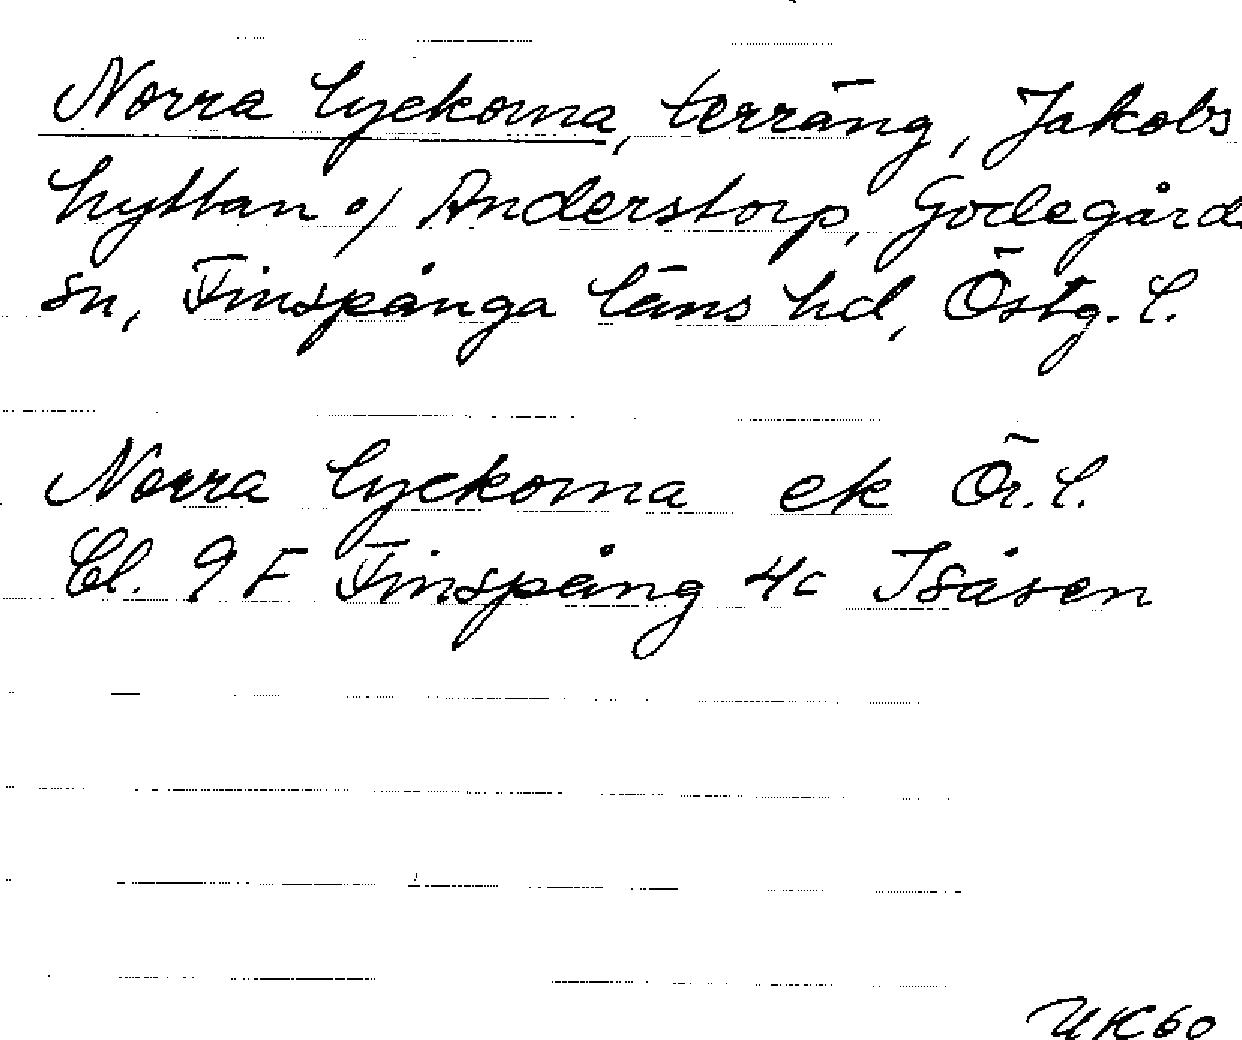 Norra Lyckorna, terräng, Jakobs
hyttan o/ Anderstorp, Godegårds
sn, Finspånga läns hd, Östg. l.
Norra Lyckorna ek Ör. l.
Bl. 9 F Finspång 4c Isåsen
UK 60